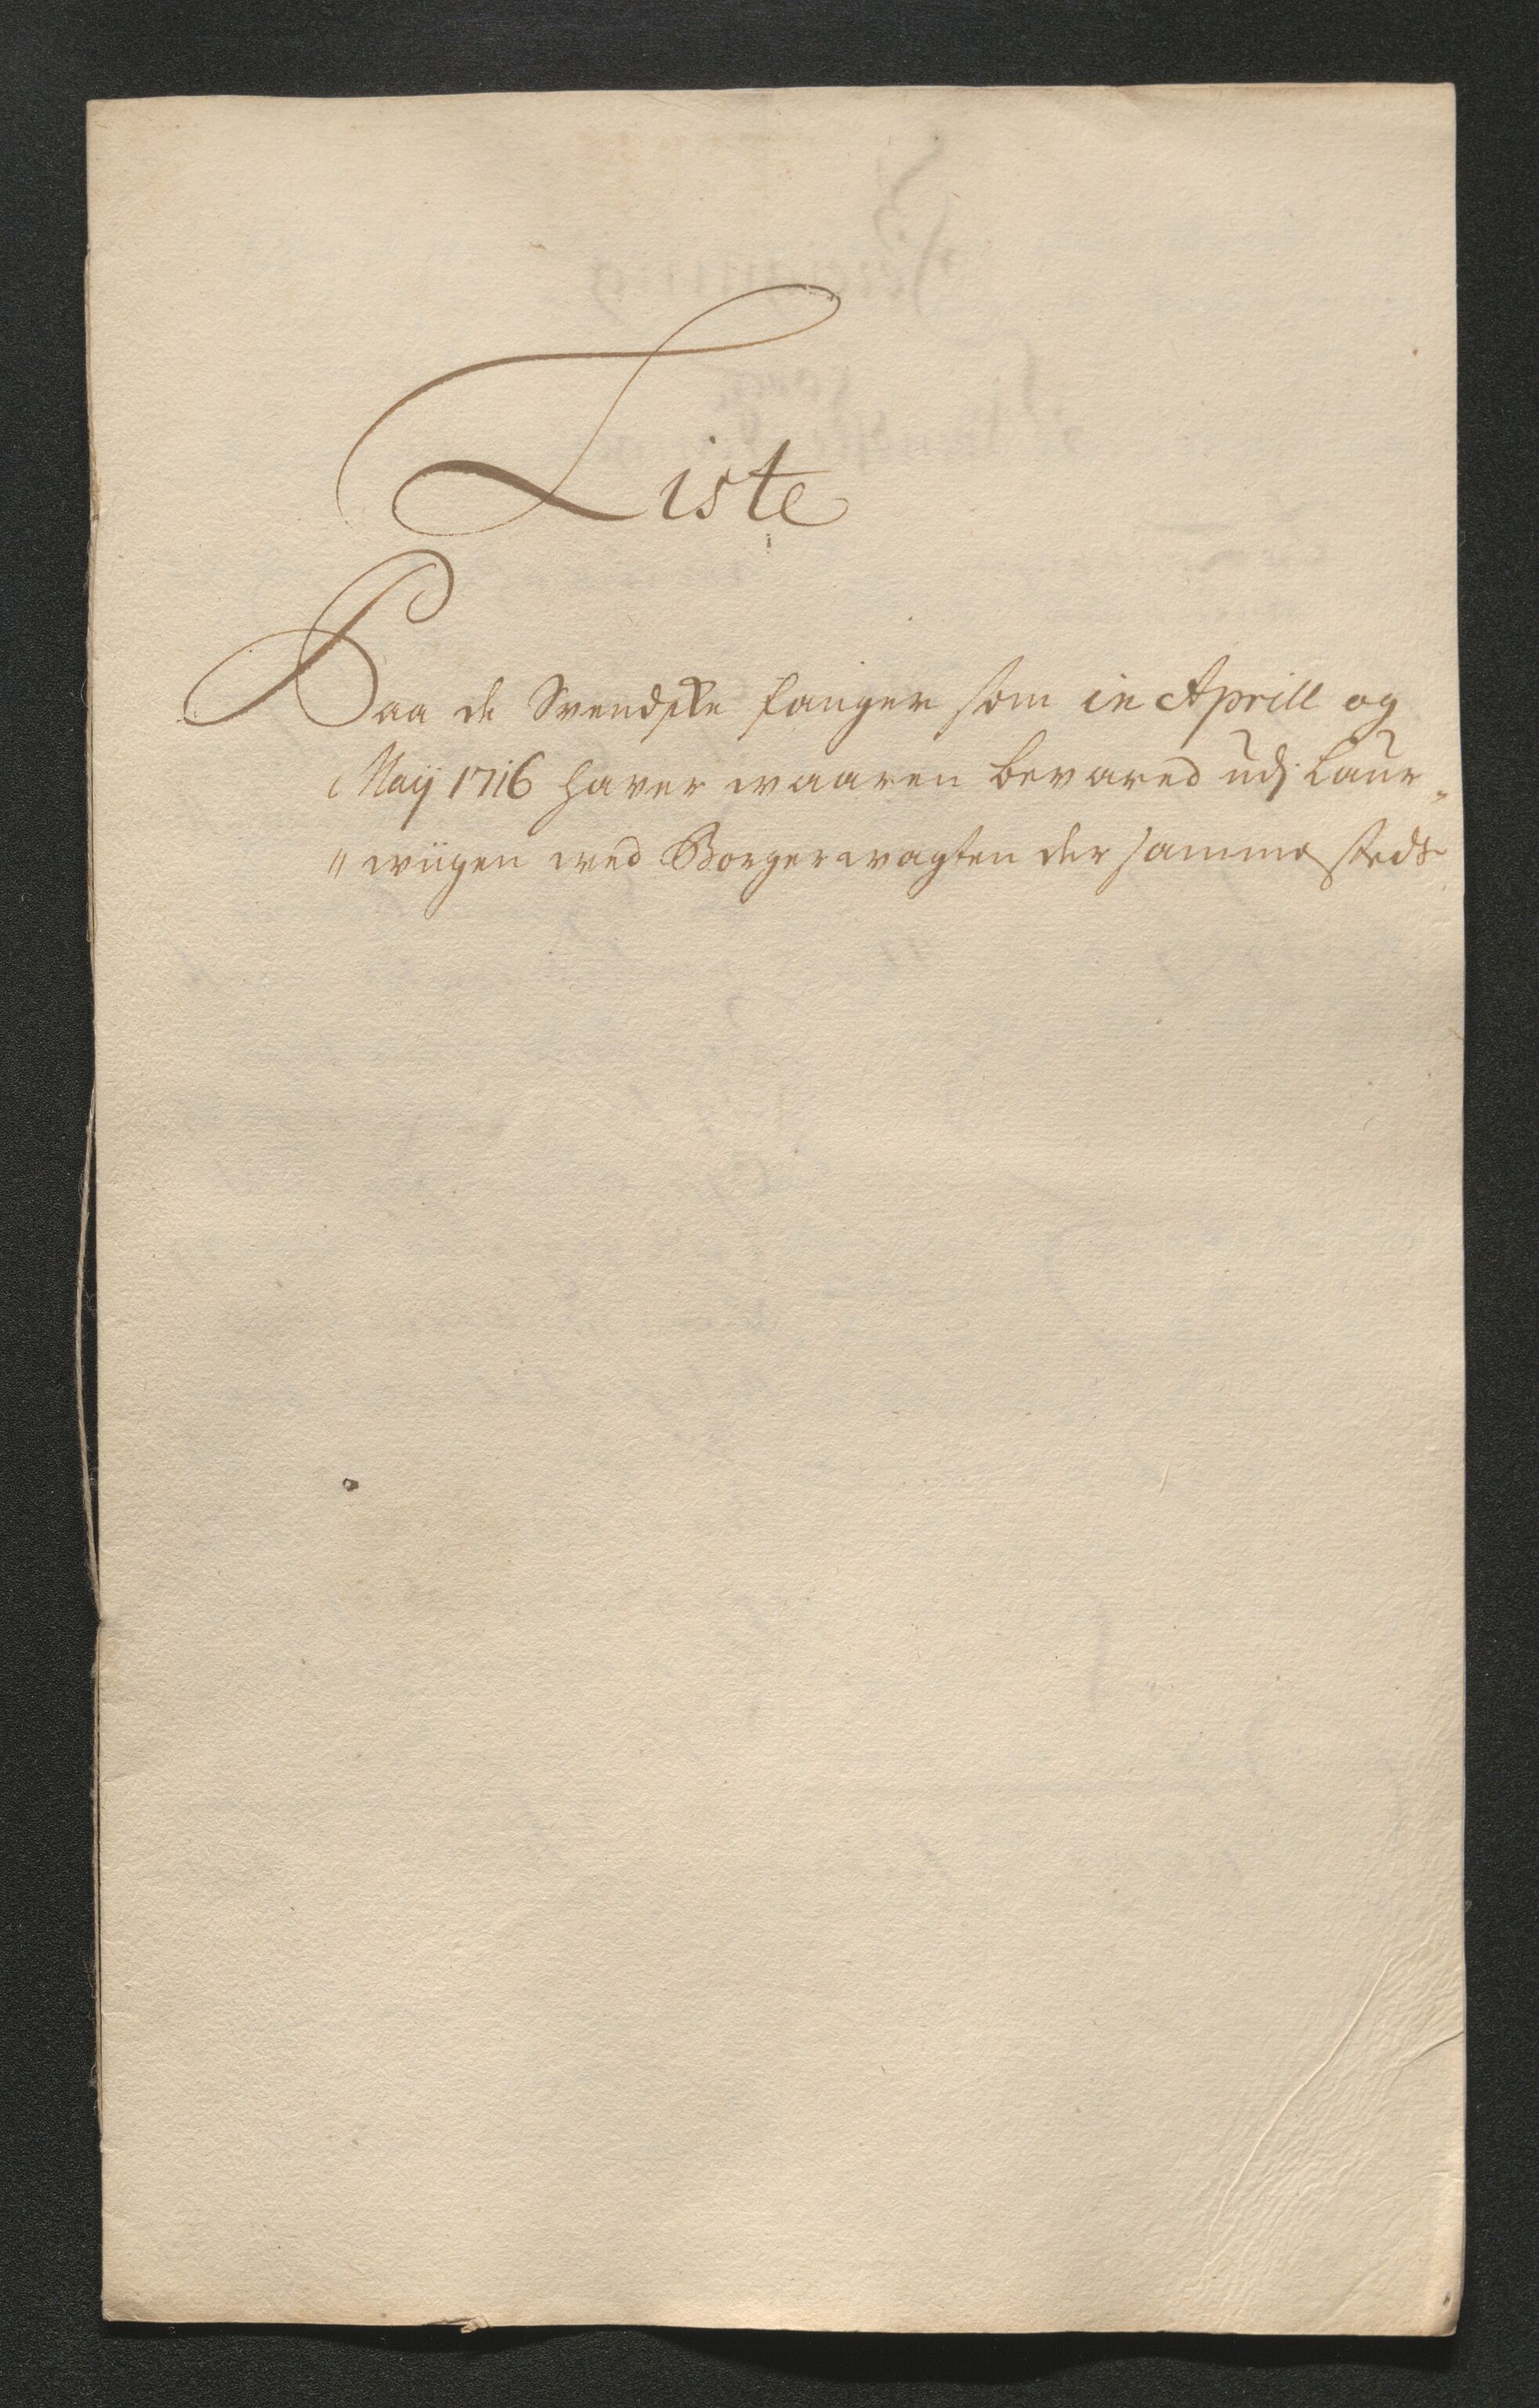 Liste
Paa de Svendske fanger som in Aprill og
Maij 1716 haver waaren bevared udj Laur„
„wiigen wed Borgerwagten der sammesteds